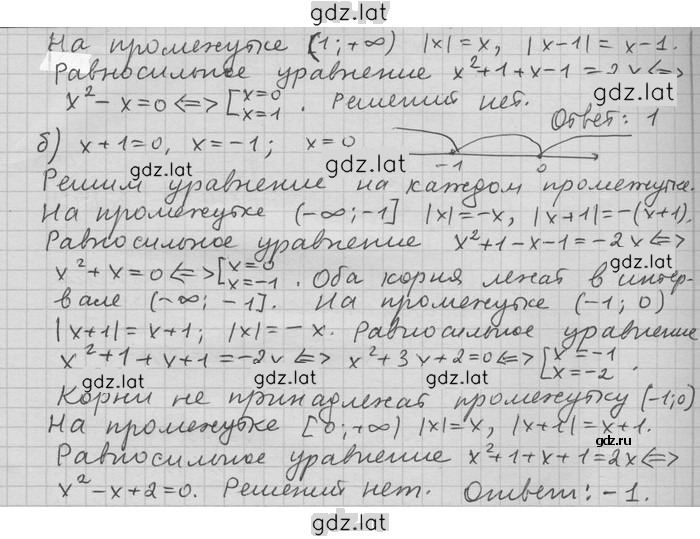 gdz.lat
На промежутке (1; +∞) |x| = x, |x-1| = x-1.
Равносильное уравнение x²+1+x-1 = 2x <=>
gdz.lat gdz.lat
x²-x=0 <=> [x=0 x=1 . Решений нет.
Ответ: 1
б) x+1=0, x=-1; x=0 -1 0
gdz.lat gdz.lat
Решим уравнение на каждом промежутке.
На промежутке (-∞; -1] |x|=-x, |x+1|=-(x+1).
gdz.lat
Равносильное уравнение x²+1-x-1=-2x <=>
gdz.lat gdz.lat
x²+x=0 <=> [x=0 x=-1 . Оба корня лежат в интер-
вале (-∞; -1]. На промежутке (-1; 0)
gdz.lat
|x+1|=x+1; |x|=-x. Равносильное уравнение
x²+1+x+1=-2x <=> x²+3x+2=0 <=> [x=-1 x=-2 .
gdz.lat gdz.lat gdz.lat
Корни не принадлежат промежутку (-1;0)
На промежутке [0; +∞) |x|=x, |x+1|=x+1.
gdz.lat gdz.ru
Равносильное уравнение x²+1+x+1=2x <=>
gdz.lat gdz.lat
x²-x+2=0. Решений нет. Ответ: -1.
gdz.lat